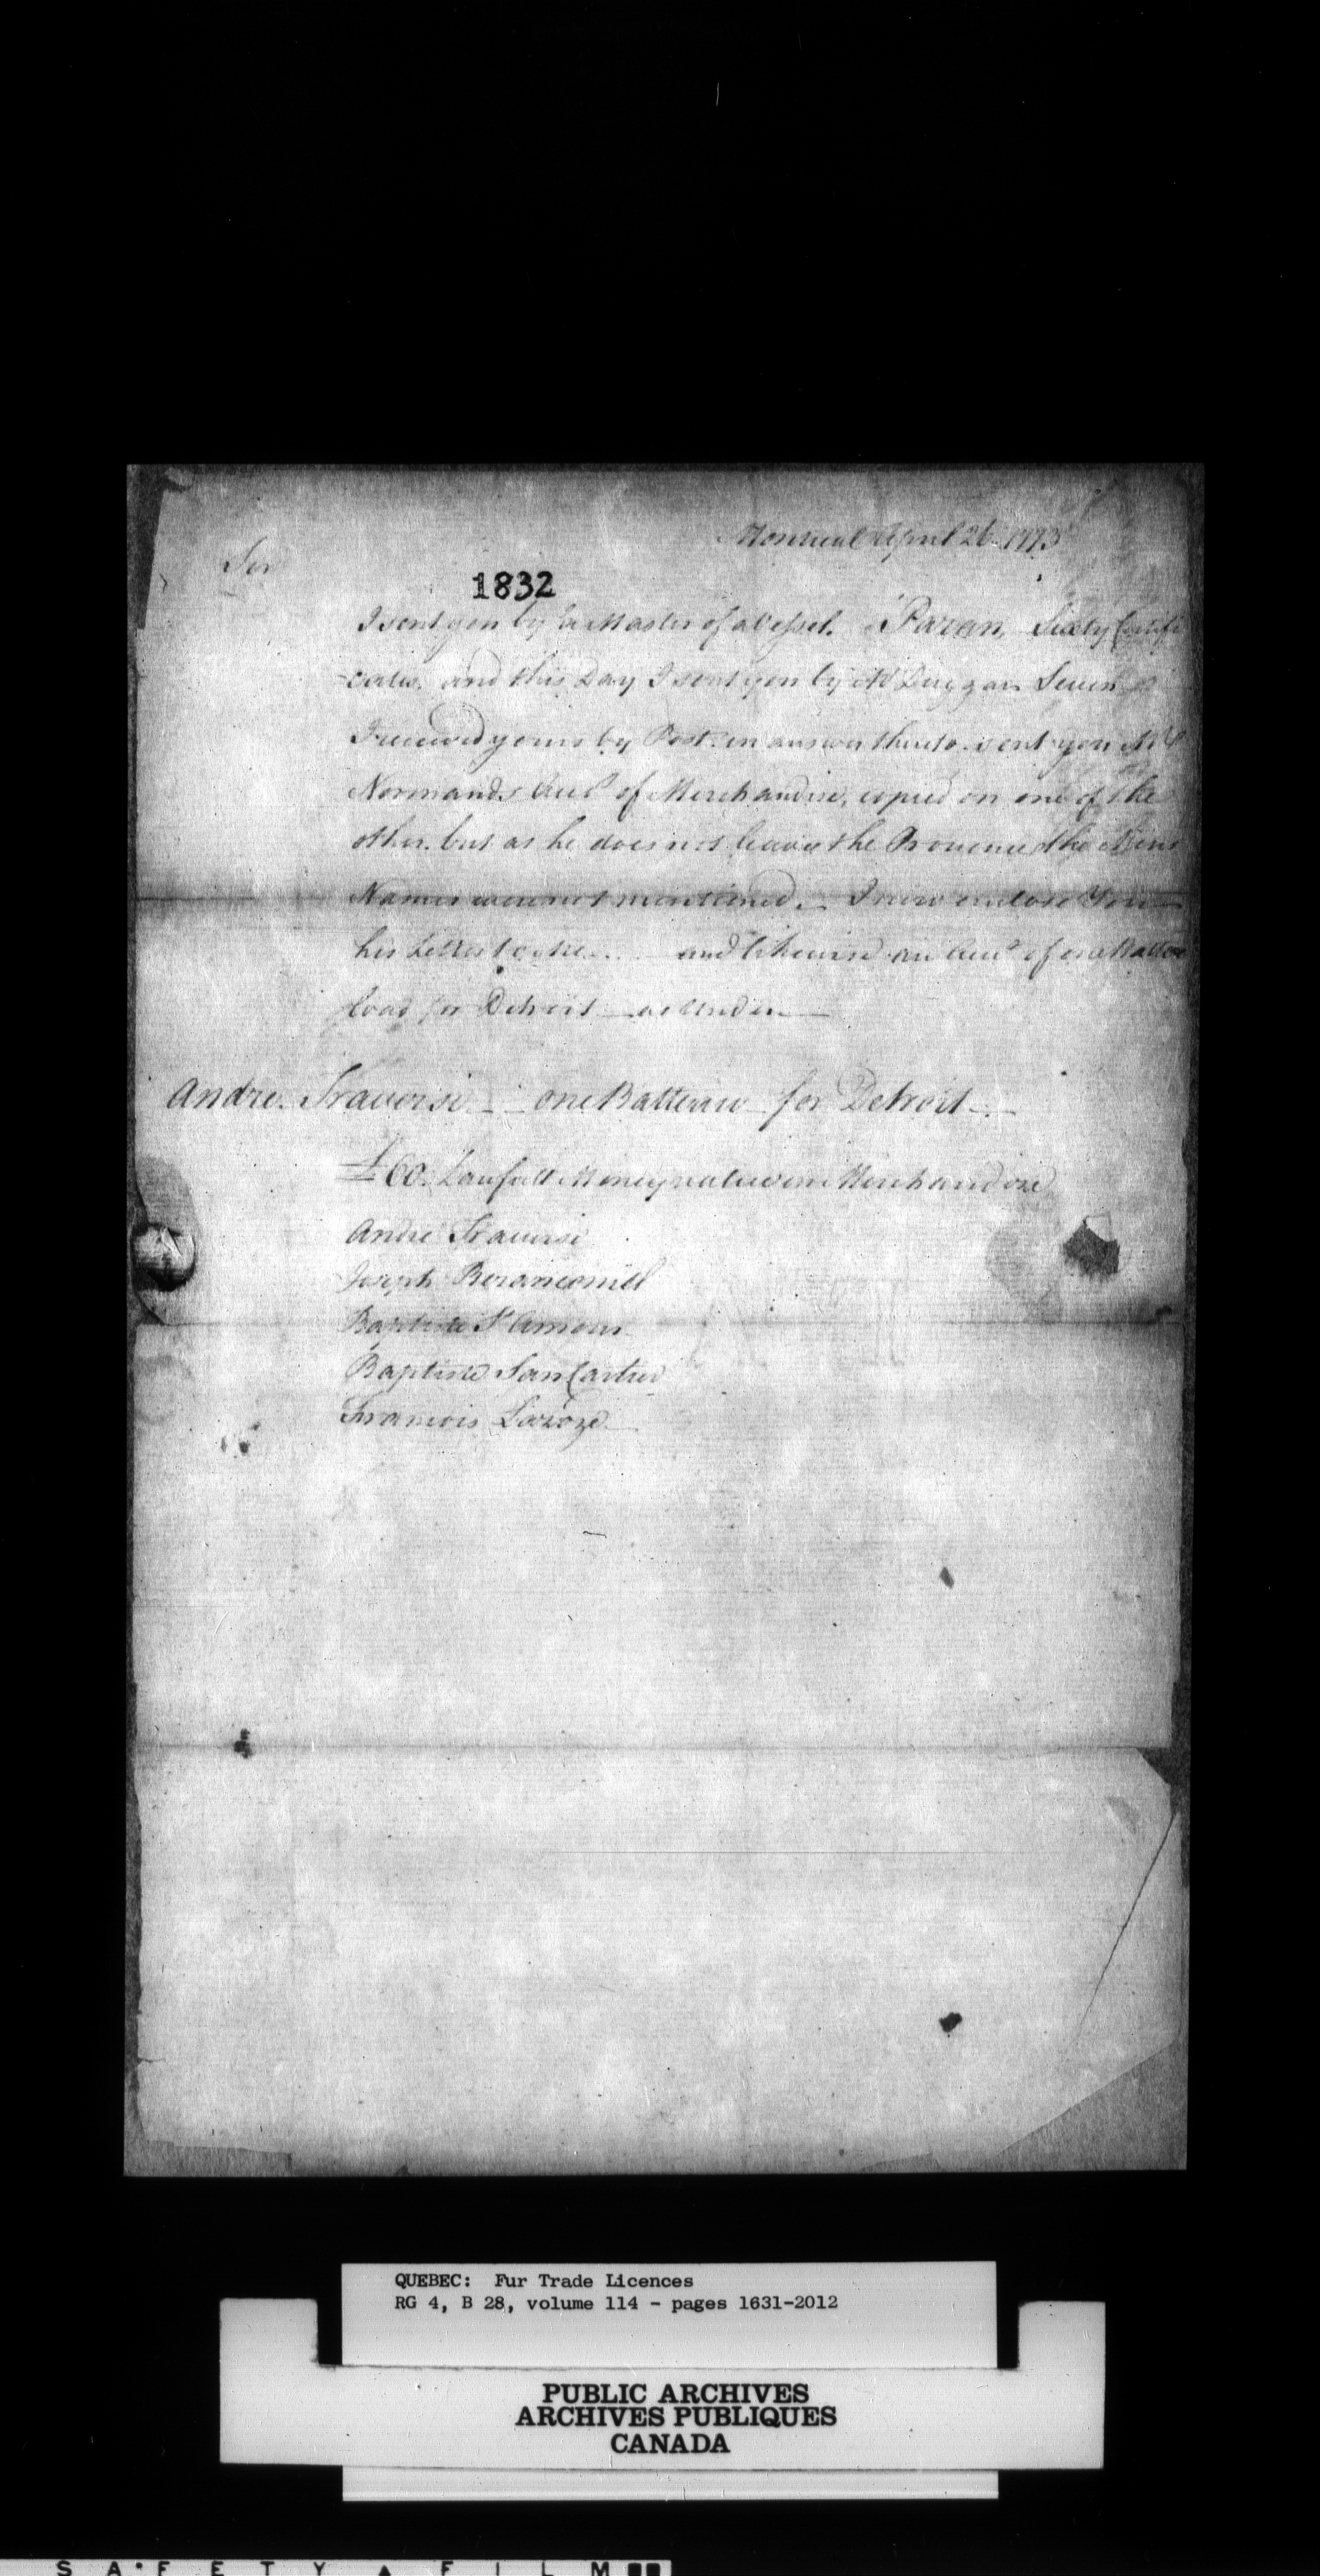 Montreal April 26 1773
Sir
1832
I sent you by a Master of a Vessel. Paran, Sixty Certifi
-cates. and this Day I sent you by Mr Duggan Seven
I received yours by Post. in answer thereto. sent you Mr
Normands Acct of Merchandise, copied on one of the
other. but as he does not leave the Provence the Mens
Names were not mentioned. I now enclose You
his Letter to me.... and likewise an Acct of one Battoe
load for Detroit as Under
Andre Traversi one Batteau for Detroit
£60. Lawfull Money value in Merchandise
Andre Traversi
Joseph
Baptiste St Amour
Baptiste SanCartier
Francois Laroze
QUEBEC: Fur Trade Licences
RG 4, B 28, volume 114 - pages 1631-2012
PUBLIC ARCHIVES
ARCHIVES PUBLIQUES
CANADA
SAFETY FILM